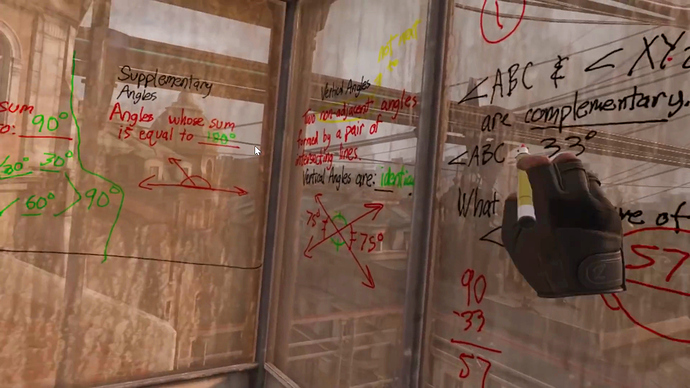 sum
90°
30° 30°
60° 90°
Supplementary
Angles
Angles whose sum
is equal to 180°
Vertical Angles
Two non-adjacent angles
formed by a pair of
intersecting lines.
Vertical Angles are:
75° 75°
1
∠ABC & ∠XYZ
are complementary.
∠ABC = 33°
What
of
∠
57
90
-33
57